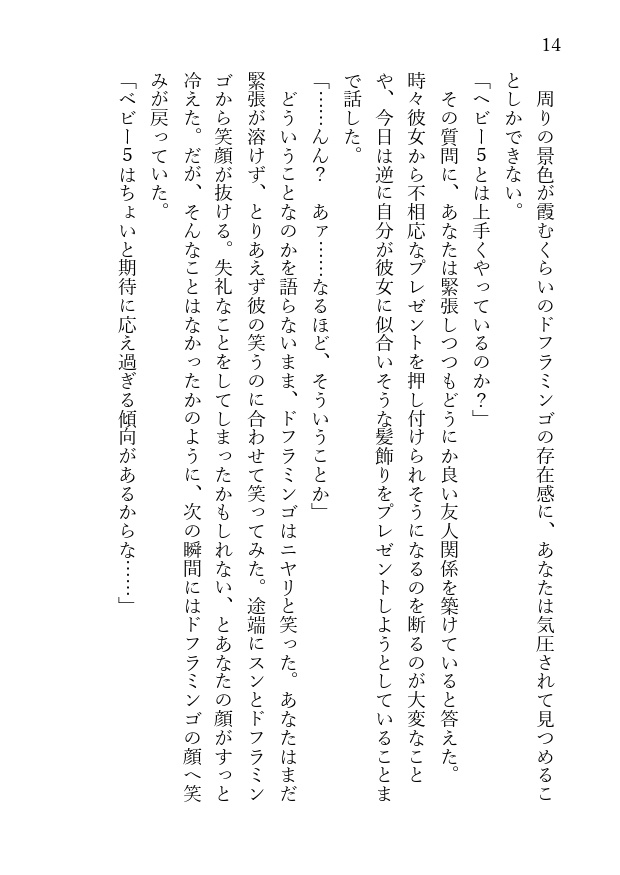 14
　周りの景色が霞むくらいのドフラミンゴの存在感に、あなたは気圧されて見つめるこ
としかできない。
「ヘビー5とは上手くやっているのか？」
　その質問に、あなたは緊張しつつもどうにか良い友人関係を築けていると答えた。
時々彼女から不相応なプレゼントを押し付けられそうになるのを断るのが大変なこと
や、今日は逆に自分が彼女に似合いそうな髪飾りをプレゼントしようとしていることま
で話した。
「……んん？　あァ……なるほど、そういうことか」
　どういうことなのかを語らないまま、ドフラミンゴはニヤリと笑った。あなたはまだ
緊張が溶けず、とりあえず彼の笑うのに合わせて笑ってみた。途端にスンとドフラミン
ゴから笑顔が抜ける。失礼なことをしてしまったかもしれない、とあなたの顔がすっと
冷えた。だが、そんなことはなかったかのように、次の瞬間にはドフラミンゴの顔へ笑
みが戻っていた。
「ベビー5はちょいと期待に応え過ぎる傾向があるからな……」